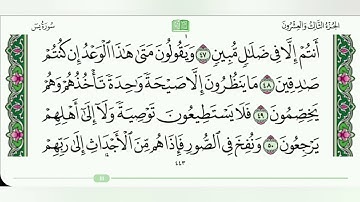 الجزء الثالث والعشرون
سورة يس
أَنتُمْ إِلَّا فِي ضَلَٰلٍ مُّبِينٍ ٤٧ وَيَقُولُونَ مَتَىٰ هَٰذَا ٱلْوَعْدُ إِن كُنتُمْ
صَٰدِقِينَ ٤٨ مَا يَنظُرُونَ إِلَّا صَيْحَةً وَٰحِدَةً تَأْخُذُهُمْ وَهُمْ
يَخِصِّمُونَ ٤٩ فَلَا يَسْتَطِيعُونَ تَوْصِيَةً وَلَآ إِلَىٰٓ أَهْلِهِمْ
يَرْجِعُونَ ٥٠ وَنُفِخَ فِي ٱلصُّورِ فَإِذَا هُم مِّنَ ٱلْأَجْدَاثِ إِلَىٰ رَبِّهِمْ
٤٤٣